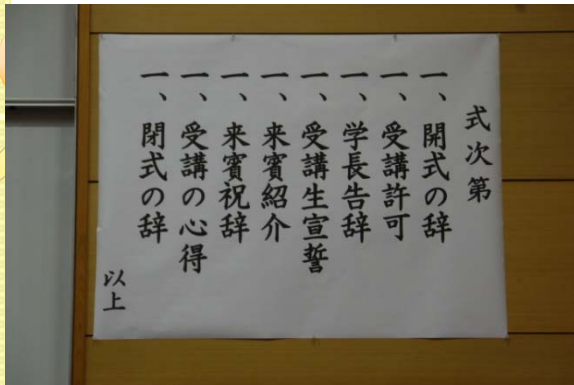 式次第
一、開式の辞
一、受講許可
一、学長告辞
一、受講生宣誓
一、来賓紹介
一、来賓祝辞
一、受講の心得
一、閉式の辞
以上